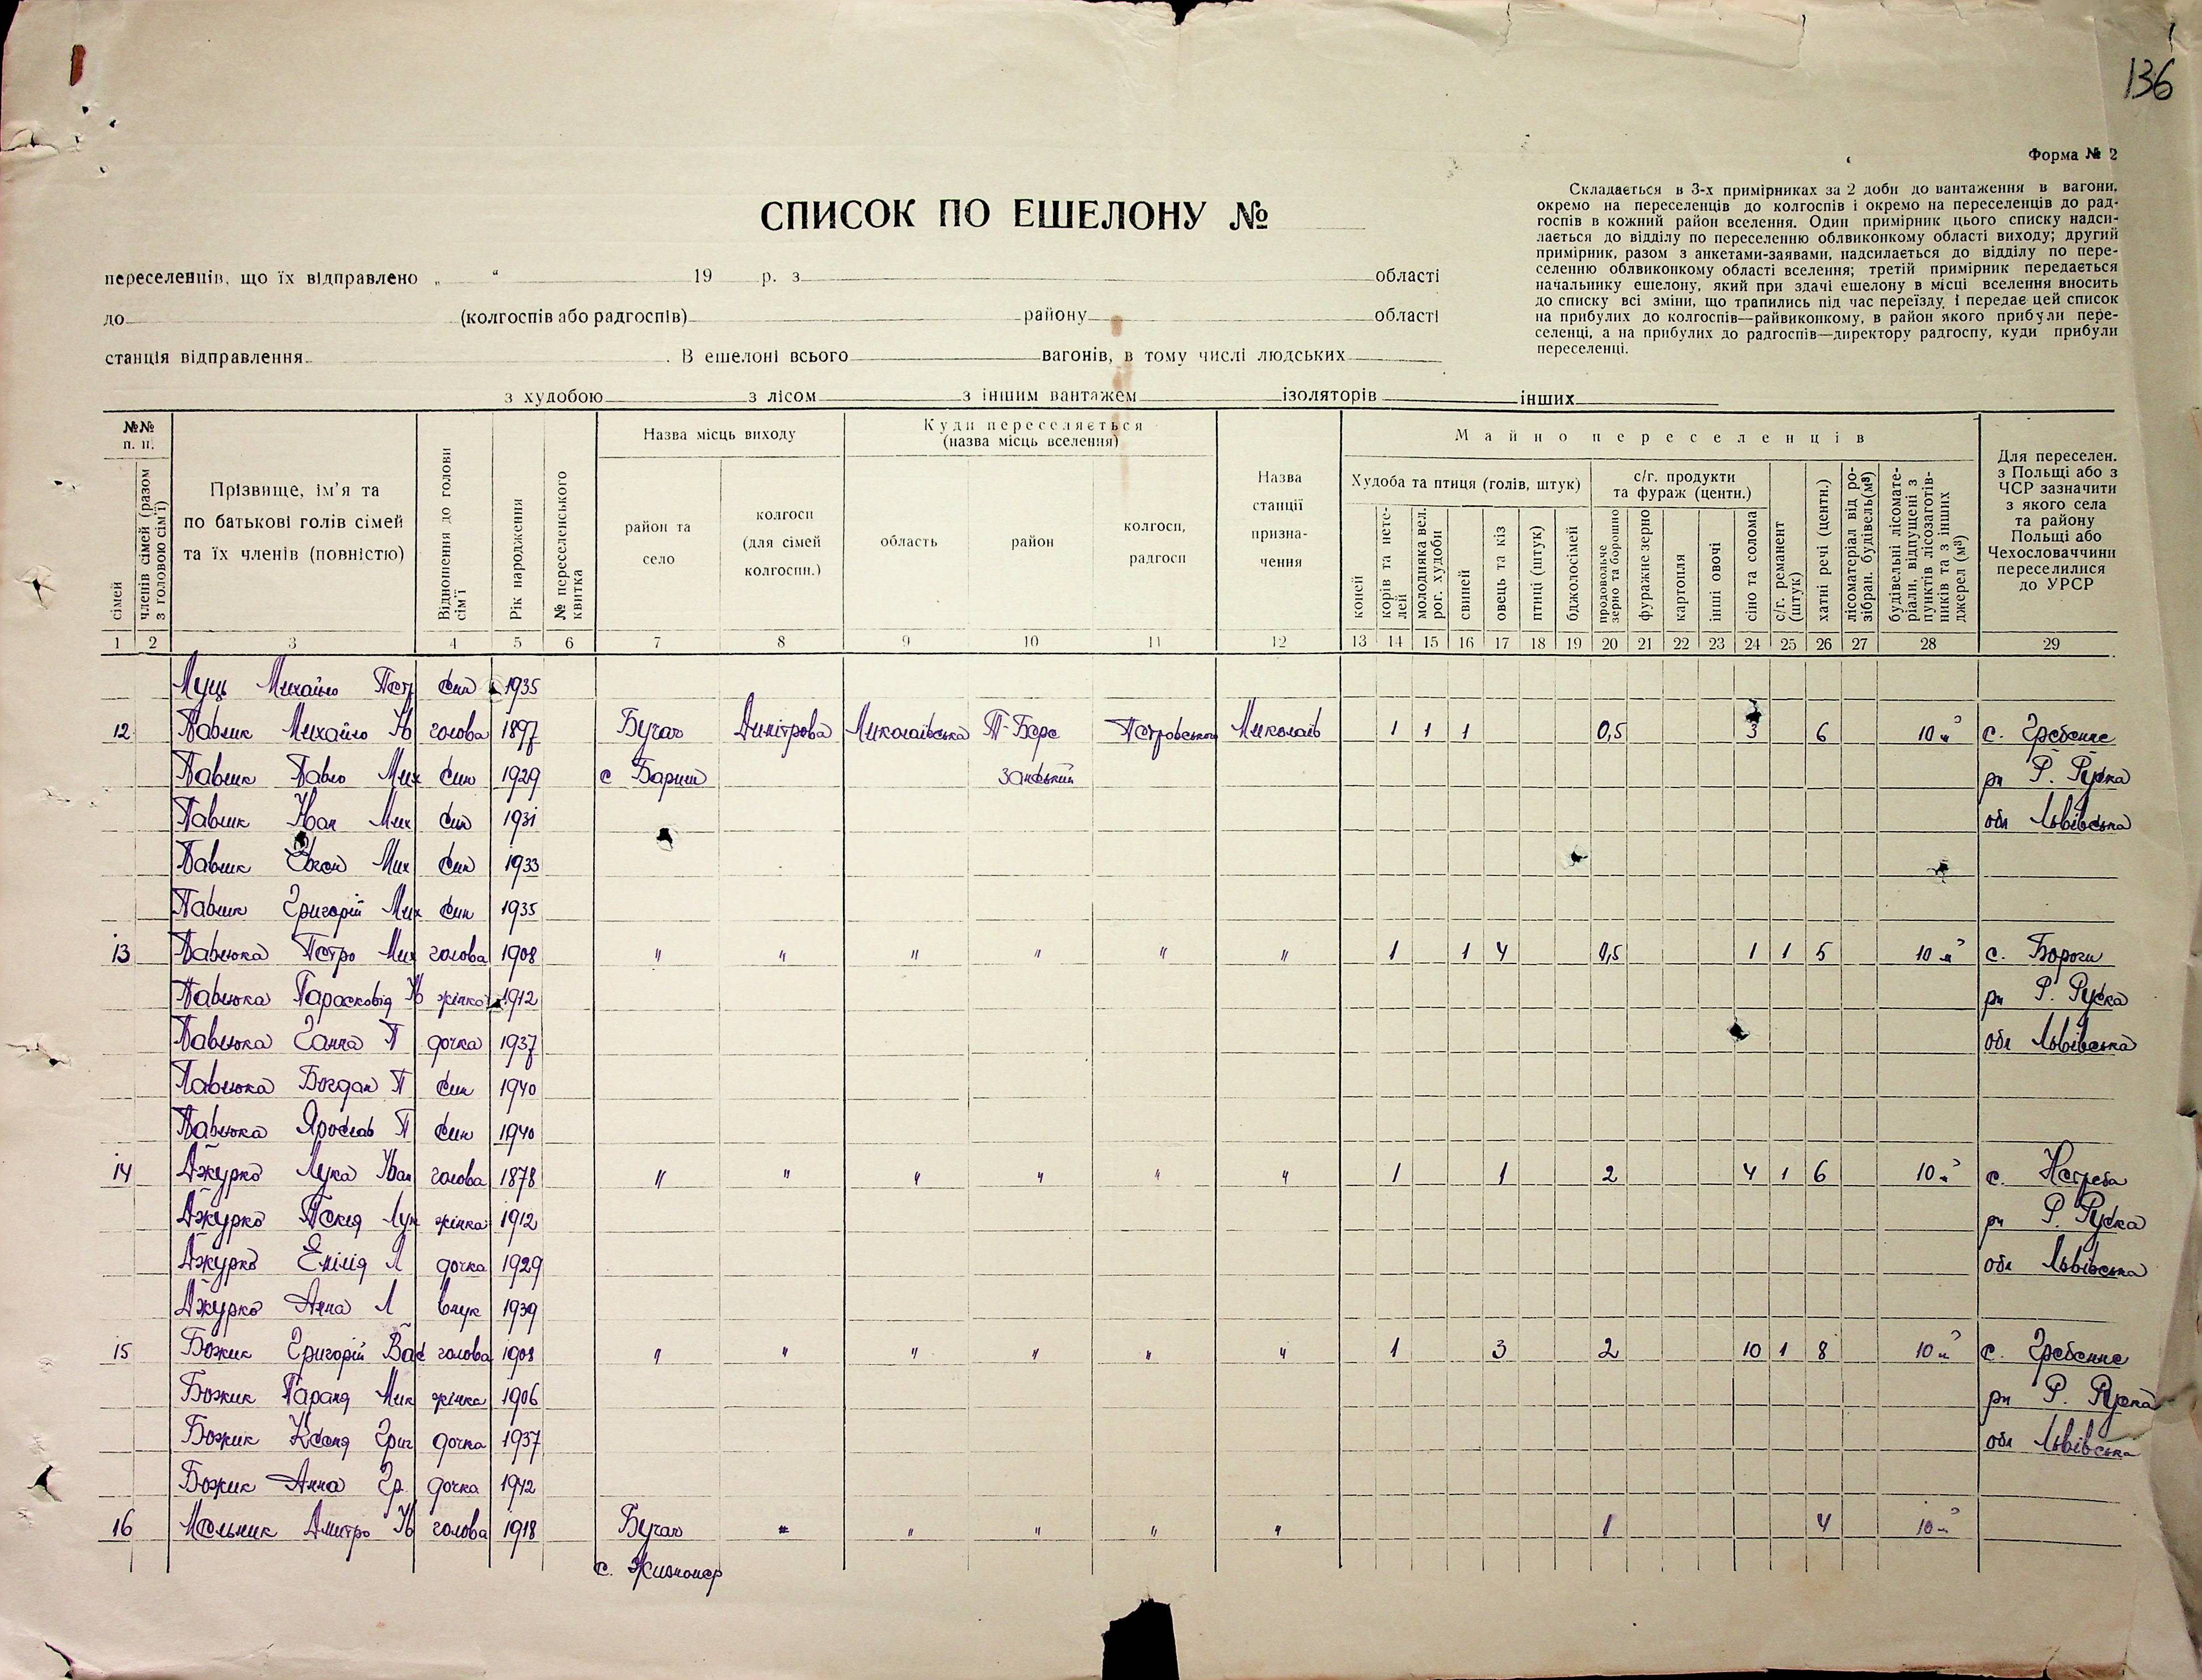 136
Форма № 2
СПИСОК ПО ЕШЕЛОНУ №
Складається в 3-х примірниках за 2 доби до вантаження в вагони,
окремо на переселенців до колгоспів і окремо на переселенців до рад-
госпів в кожний район вселення. Один примірник цього списку надси-
лається до відділу по переселенню облвиконкому області виходу; другий
примірник, разом з анкетами-заявами, надсилається до відділу по пере-
селенню облвиконкому області вселення; третій примірник передається
начальнику ешелону, який при здачі ешелону в місці вселення вносить
до списку всі зміни, що трапились під час переїзду, і передає цей список
на прибулих до колгоспів—райвиконкому, в район якого прибули пере-
селенці, а на прибулих до радгоспів—директору радгоспу, куди прибули
переселенці.
переселенців, що їх відправлено „ “ 19 р. з області
до (колгоспів або радгоспів) району області
станція відправлення . В ешелоні всього вагонів, в тому числі людських
з худобою з лісом з іншим вантажем ізоляторів інших
№№ п. п.
сімей
членів сімей (разом з головою сім'ї)
Прізвище, ім'я та
по батькові голів сімей
та їх членів (повністю)
Відношення до голови сім'ї
Рік народження
№ переселенського квитка
Назва місць виходу
район та
село
колгосп
(для сімей
колгоспн.)
Куди переселяється
(назва місць вселення)
область
район
колгосп,
радгосп
Назва
станції
призна-
чення
Майно переселенців
Худоба та птиця (голів, штук)
коней
корів та нете-
лей
молодняка вел.
рог. худоби
свиней
овець та кіз
птиці (штук)
бджолосімей
с/г. продукти
та фураж (центн.)
продовольче
зерно та борошно
фуражне зерно
картопля
інші овочі
сіно та солома
с/г. реманент
(штук)
хатні речі (центн.)
лісоматеріал від ро-
зібран. будівель(м³)
будівельні лісомате-
ріали, відпущені з
пунктів лісозаготів-
ників та з інших
джерел (м³)
Для переселен.
з Польщі або з
ЧСР зазначити
з якого села
та району
Польщі або
Чехословаччини
переселилися
до УРСР
1 2 3 4 5 6 7 8 9 10 11 12 13 14 15 16 17 18 19 20 21 22 23 24 25 26 27 28 29
Луць Михайло Петр син 1935
12 Павлик Михайло Ів голова 1897 Бучач Димітрова Миколаївська Т-Бере Петровського Миколаїв 1 1 1 0,5 3 6 10 м³ с. Гребенне
Павлик Павло Мих син 1929 с Бариш занський рн Р. Руска
Павлик Іван Мих син 1931 обл Львівська
Павлик Євген Мих син 1933
Павлик Григорій Мих син 1935
13 Павлюка Петро Мих голова 1908 " " " " " " 1 1 4 0,5 1 1 5 10 м³ с. Вороги
Павлюка Парасковія Ів жінка 1912 рн Р. Руска
Павлюка Ганна П дочка 1937 обл Львівська
Павлюка Богдан П син 1940
Павлюка Ярослав П син 1940
14 Джурко Лука Іван голова 1878 " " " " " " 1 1 2 4 1 6 10 м³ с. Нагреба
Джурко Текля Лук жінка 1912 рн Р. Руска
Джурко Емілія Л дочка 1929 обл Львівська
Джурко Анна Л внук 1939
15 Божик Григорій Вас голова 1908 " " " " " " 1 3 2 10 1 8 10 м³ с. Гребенне
Божик Параня Мик жінка 1906 рн Р. Руска
Божик Ксеня Григ дочка 1937 обл Львівська
Божик Анна Гр. дочка 1942
16 Мельник Дмитро Ів голова 1918 Бучач " " " " " 1 4 10 м³
с. Жизномер